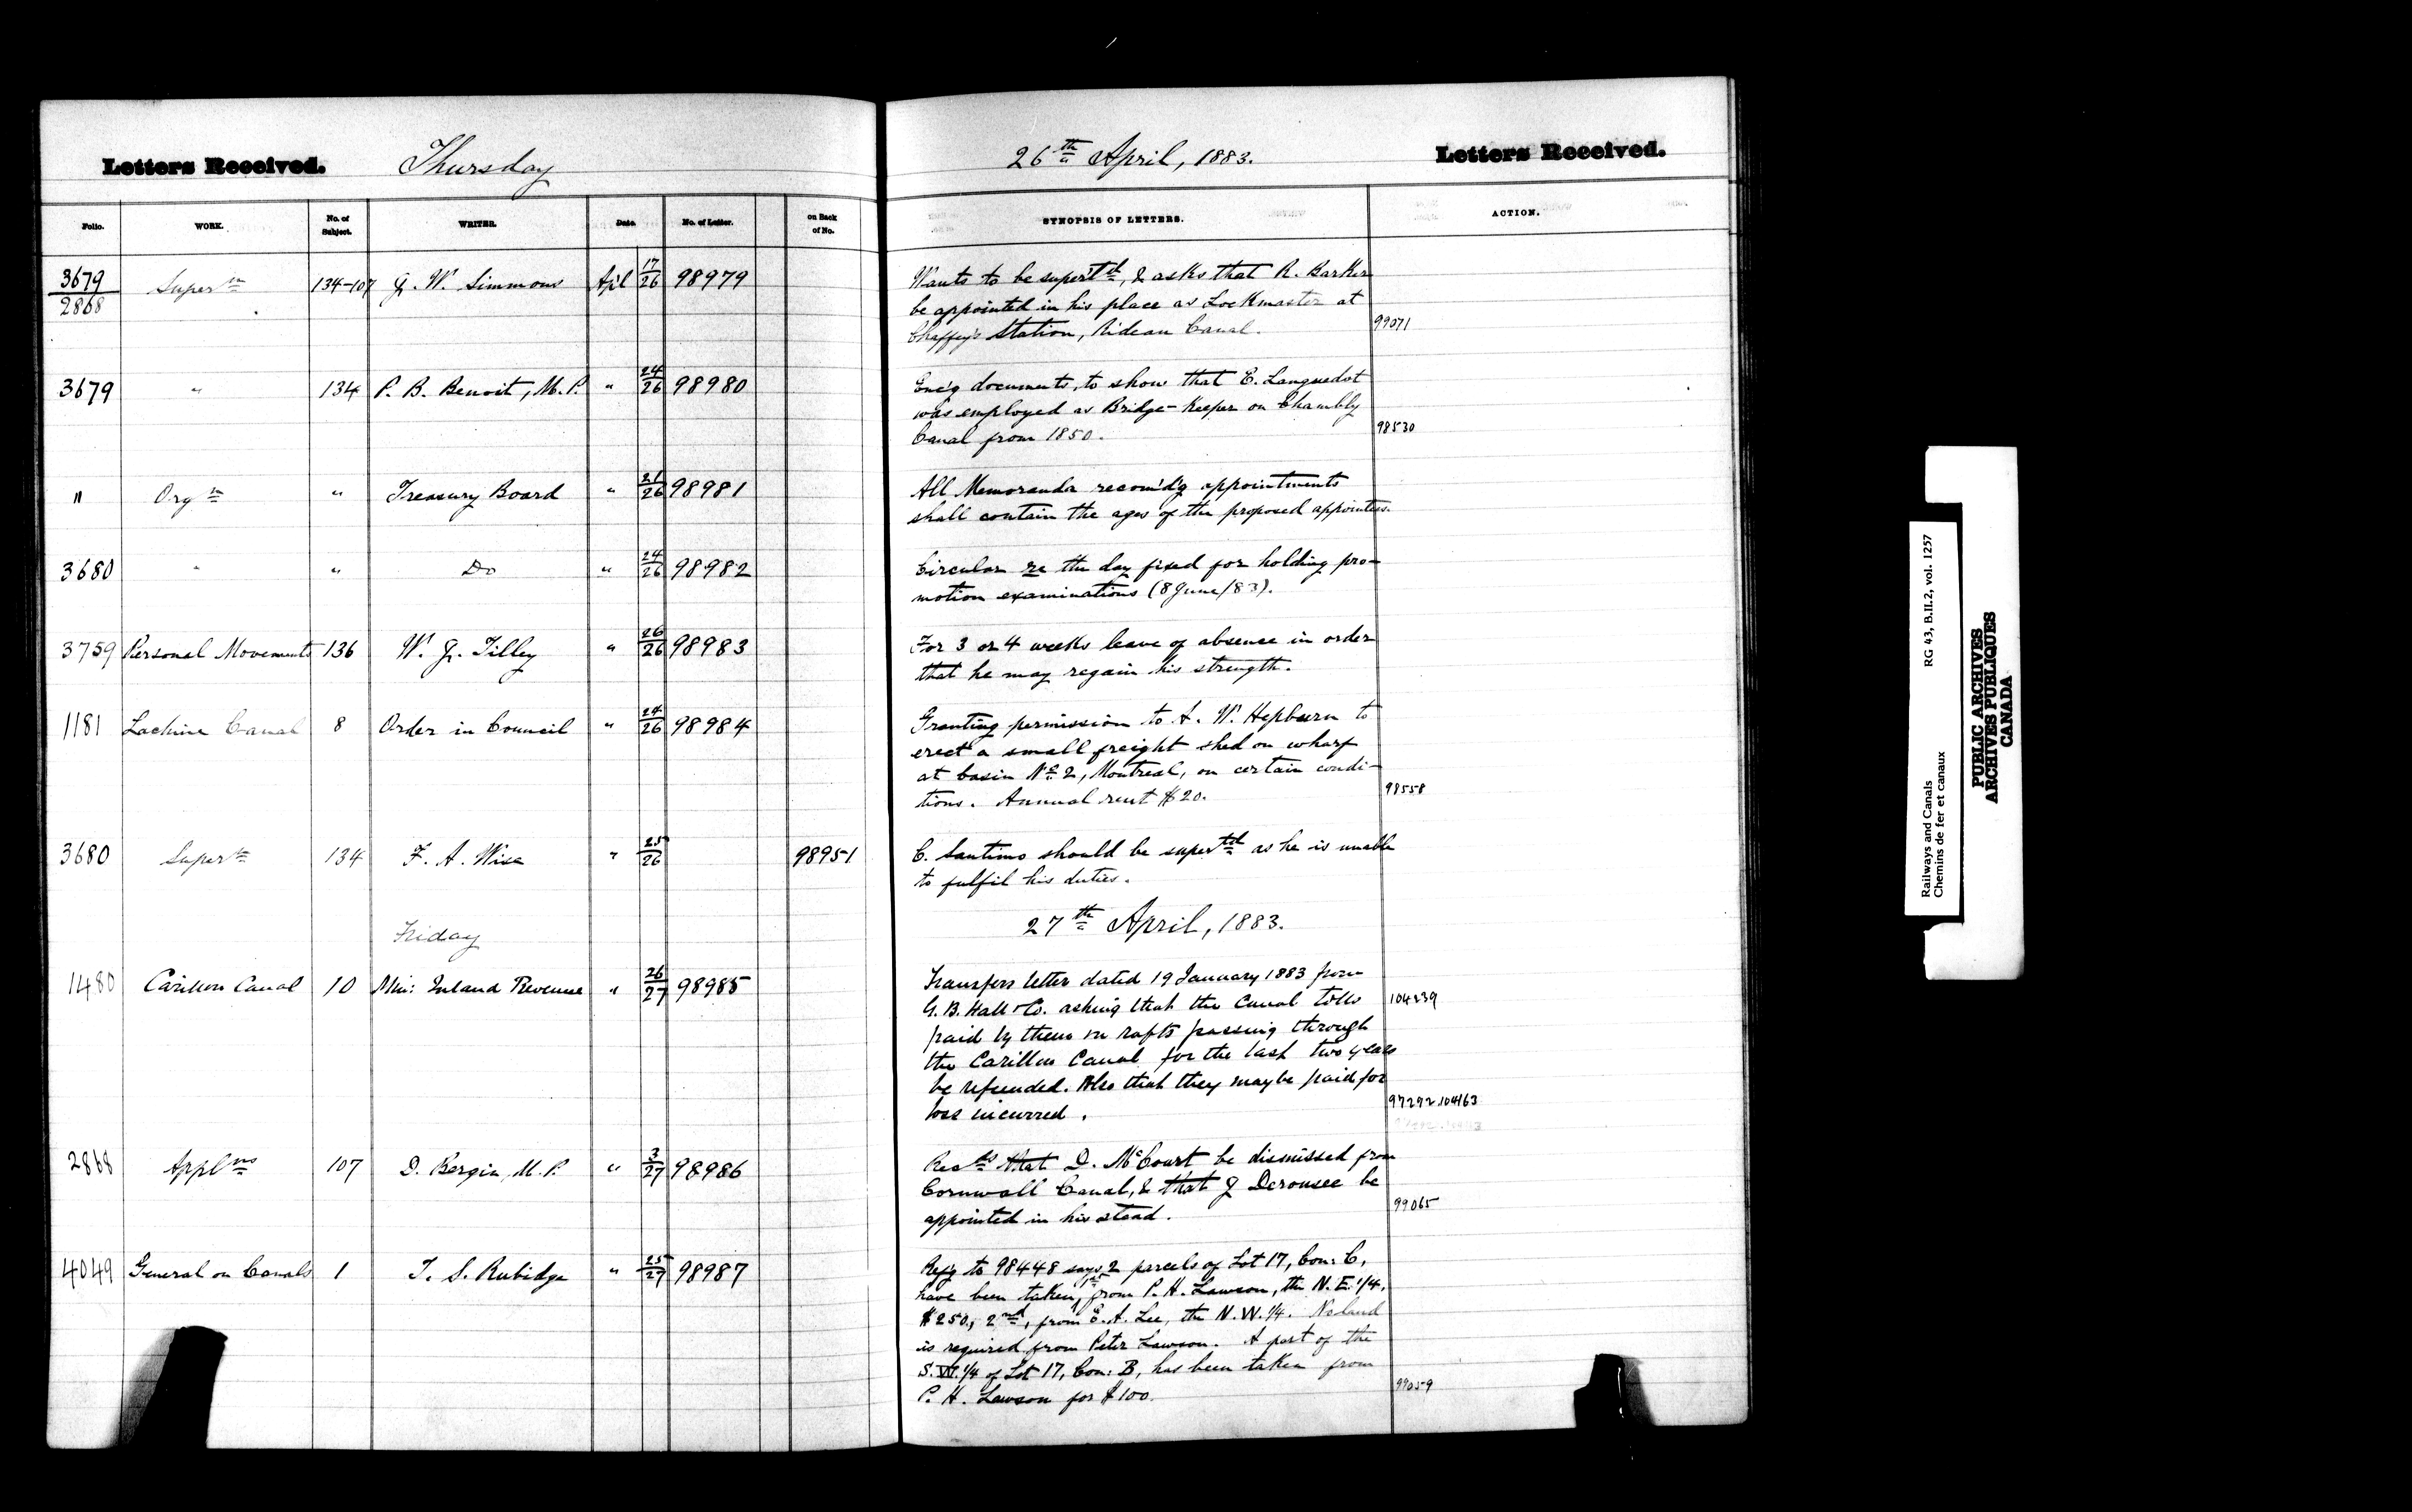 Letters Received. Thursday 26th April, 1883. Letters Received.
Folio. WORK. No. of Subject. WRITER. Date. No. of Letter. on Back of No. SYNOPSIS OF LETTERS. ACTION.
3679/2868 Supern 134-107 J. W. Simmons Apl 17/26 98979 Wants to be supertd, & asks that R. Barker
be appointed in his place as Lockmaster at
Chaffey's Station, Rideau Canal. 99071
3679 " 134 P. B. Benoit, M.P. " 24/26 98980 Enc'g documents, to show that E. Languedot
was employed as Bridge-Keeper on Chambly
Canal from 1850. 98530
" Orgn " Treasury Board " 21/26 98981 All Memoranda recom'd'g appointments
shall contain the ages of the proposed appointees.
3680 " " Do " 24/26 98982 Circular re the day fixed for holding pro-
motion examinations (8 June/83).
3759 Personal Movements 136 W. J. Tilley " 26/26 98983 For 3 or 4 weeks leave of absence in order
that he may regain his strength.
1181 Lachine Canal 8 Order in Council " 24/26 98984 Granting permission to A. W. Hepburn to
erect a small freight shed on wharf
at basin No 2, Montreal, on certain condi-
tions. Annual rent $20. 98558
3680 Supern 134 F. A. Wise " 25/26 98951 C. Santimo should be supertd as he is unable
to fulfil his duties.
Friday 27th April, 1883.
1480 Carillon Canal 10 Min: Inland Revenue " 26/27 98985 Transfers letter dated 19 January 1883 from
G. B. Hall & Co. asking that the Canal tolls 104239
paid by them on rafts passing through
the Carillon Canal for the last two years
be refunded. Also that they may be paid for
loss incurred. 97292 104163
2868 Applns 107 D. Bergin, M.P. " 3/27 98986 Recds that D. McCourt be dismissed from
Cornwall Canal, & that J Derousee be
appointed in his stead. 99065
4049 General on Canals 1 T. S. Rubidge " 25/27 98987 Ref'g to 98448 says 2 parcels of Lot 17, Con: C,
have been taken, 1st from P. H. Lawson, the N.E. 1/4,
$250, 2nd, from E. A. Lee, the N.W. 1/4. No land
is required from Peter Lawson. A part of the
S.W. 1/4 of Lot 17, Con: B, has been taken from
P. H. Lawson for $100. 99059
Railways and Canals RG 43, B.II.2, vol. 1257
Chemins de fer et canaux
PUBLIC ARCHIVES
ARCHIVES PUBLIQUES
CANADA